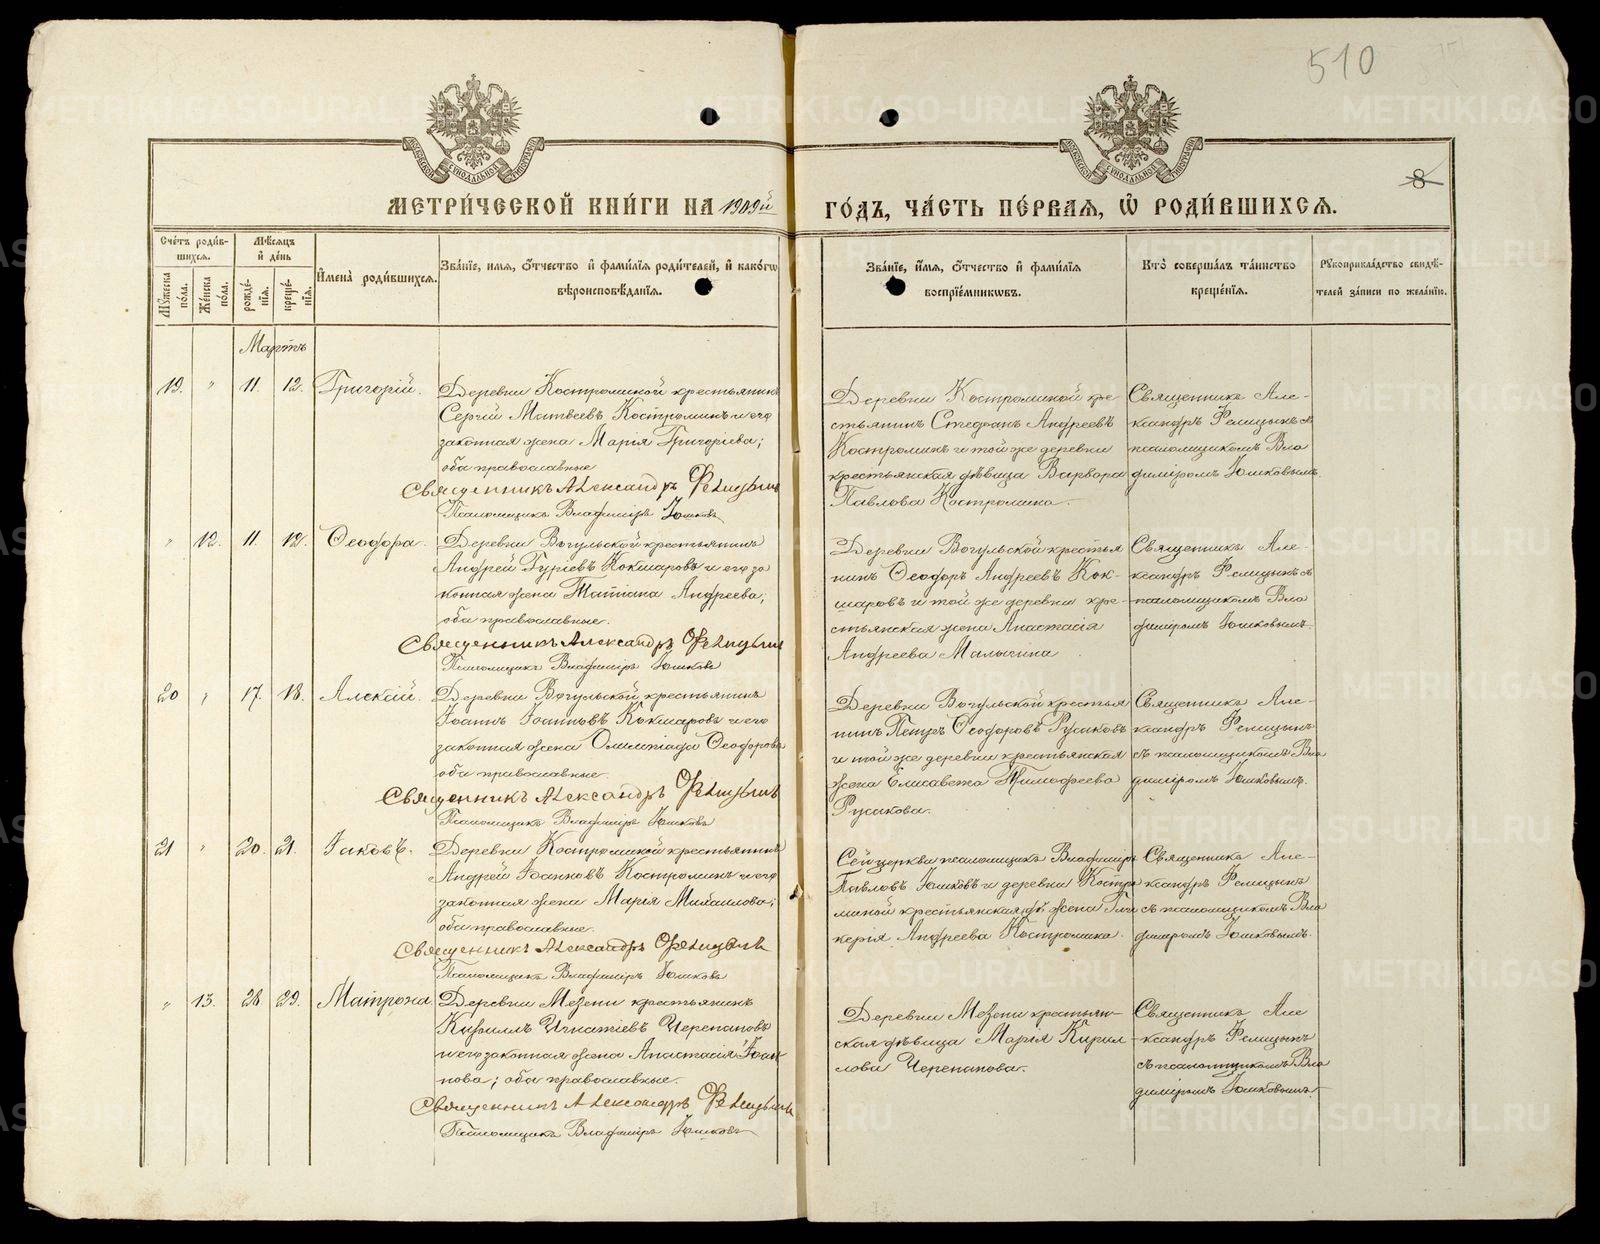 510
8
МЕТРИ́ЧЕСКОЙ КНИ́ГИ НА 1909й ГО́ДЪ, ЧА́СТЬ ПЕ́РВАЯ, Ѡ РОДИ́ВШИХСЯ.
Сче́тъ роди́в-
шихся.
Му́жеска по́ла.
Же́нска по́ла.
Мѣ́сяцъ
и де́нь
рожде́-
нїя.
креще́-
нїя.
Имена̀ роди́вшихся.
Зва́нїе, имя, о́тчество и фами́лїя роди́телей, и како́гѡ
вѣроисповѣ́данїя.
Зва́нїе, и́мя, о́тчество и фами́лїя
воспрїе́мниковъ.
Кто̀ соверша́лъ та́инство
креще́нїя.
Рукоприкла́дство свидѣ́-
телей за́писи по жела́нїю.
Мартъ
19. " 11. 12. Григорій.
Деревни Костроминой крестьянинъ
Сергій Матвеевъ Костроминъ и его
законная жена Марія Григоріева;
оба православные
Священникъ Александръ Фелицынъ
Псаломщикъ Владиміръ Юшковъ
Деревни Костроминой кре-
стьянинъ Стефанъ Андреевъ
Костроминъ и той же деревни
крестьянская дѣвица Варвара
Павлова Костромина.
Священникъ Але-
ксандръ Фелицынъ съ
псаломщикомъ Вла
диміромъ Юшковымъ.
" 12. 11. 12. Ѳеодора.
Деревни Вогульской крестьянинъ
Андрей Гуріевъ Кокшаровъ и его за
конная жена Татіана Андреева;
оба православные.
Священникъ Александръ Фелицынъ
Псаломщикъ Владиміръ Юшковъ
Деревни Вогульской крестья
нинъ Ѳеодоръ Андреевъ Кок-
шаровъ и той же деревни кре-
стьянская жена Анастасія
Андреева Малыгина
Священникъ Але-
ксандръ Фелицынъ съ
псаломщикомъ Вла
диміромъ Юшковымъ.
20 " 17. 18. Алексій.
Деревни Вогульской крестьянинъ
Іоаннъ Іоанновъ Кокшаровъ и его
законная жена Олимпіада Ѳеодорова
оба православные.
Священникъ Александръ Фелицынъ
Псаломщикъ Владиміръ Юшковъ
Деревни Вогульской крестья
нинъ Петръ Ѳеодоровъ Русаковъ
и той же деревни крестьянская
жена Елисавета Тимофеева
Русакова.
Священникъ Але-
ксандръ Фелицынъ
съ псаломщикомъ Вла
диміромъ Юшковымъ.
21 " 20. 21. Іаковъ.
Деревни Костроминой крестьянинъ
Андрей Іоанновъ Костроминъ и его
законная жена Марія Михаилова;
оба православные.
Священникъ Александръ Фелицынъ
Псаломщикъ Владиміръ Юшковъ
Сей церкви псаломщикъ Владиміръ
Павловъ Юшковъ и деревни Костро
миной крестьянская жена Гли
керія Андреева Костромина.
Священникъ Але-
ксандръ Фелицынъ
съ псаломщикомъ Вла
диміромъ Юшковымъ.
" 13. 28 29. Матрона
Деревни Мезени крестьянинъ
Кириллъ Игнатіевъ Черепановъ
и его законная жена Анастасія Іоан
нова; оба православные.
Священникъ Александръ Фелицынъ
Псаломщикъ Владиміръ Юшковъ
Деревни Мезени крестьян-
ская дѣвица Марія Кирил-
лова Черепанова.
Священникъ Але
ксандръ Фелицынъ
съ псаломщикомъ Вла
диміромъ Юшковымъ.
METRIKI.GASO-URAL.RU